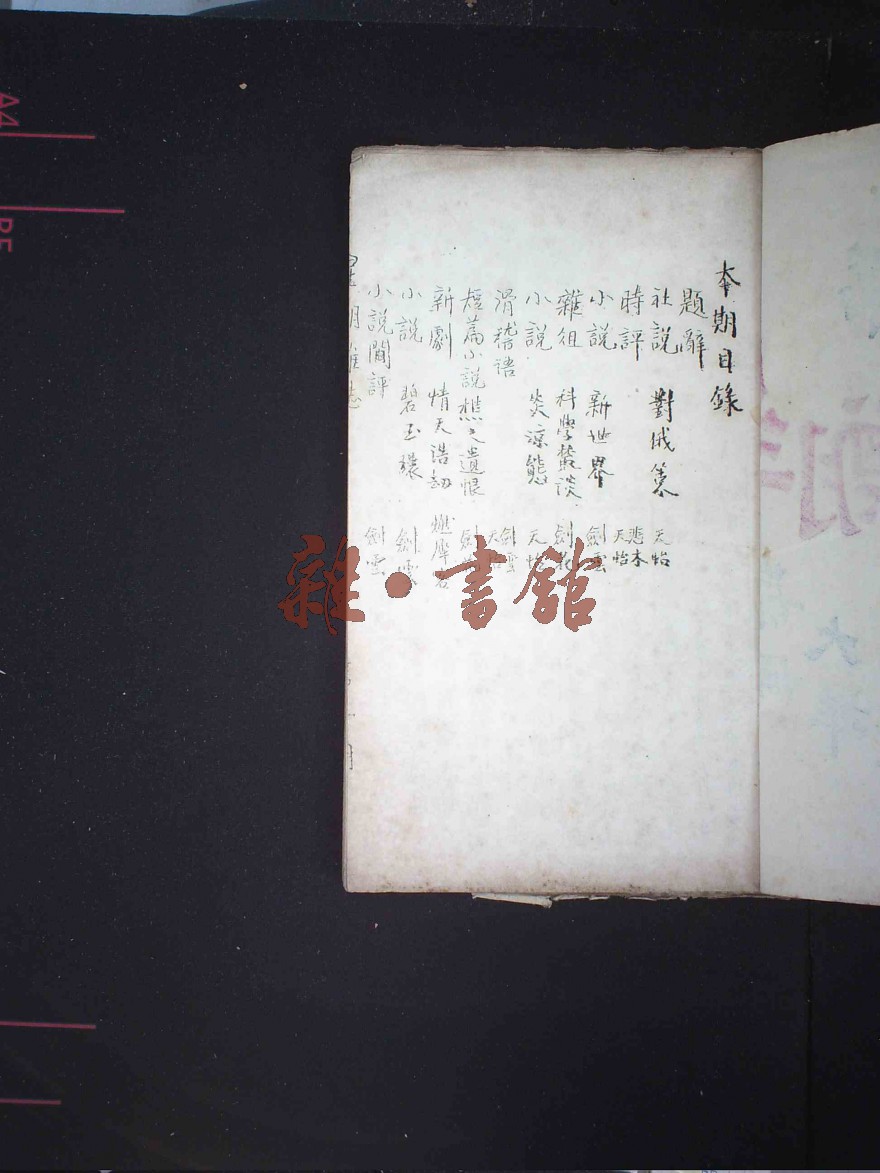 本期目錄
題辭
社說 對俄策 天怡
時評 悲木 天怡
小說 新世界 劍雲
雜俎 科學叢談 劍花
小說 炎涼態 天怡
滑稽語 劍雲 天
短篇小說 樵之遺恨 劍
新劇 情天浩劫 燃犀
小說 碧玉環 劍雲
小說閒評 劍雲
雜・書館
A4